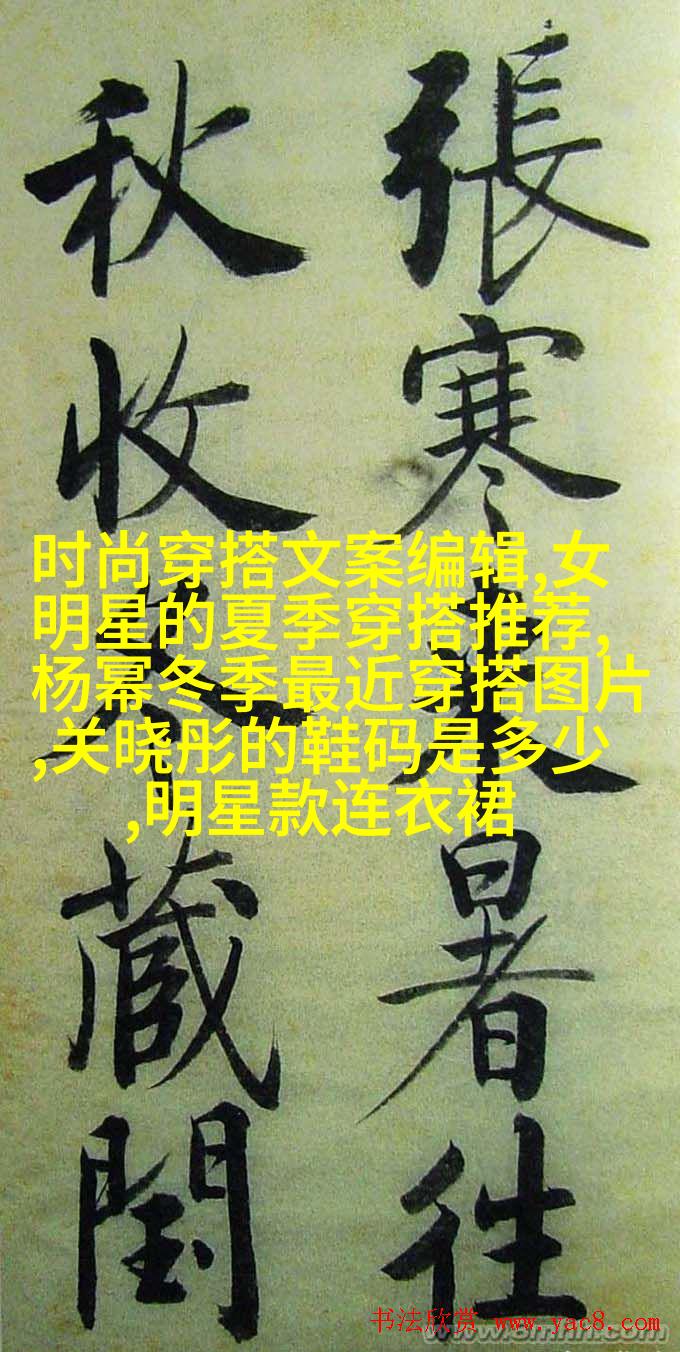 張寒来暑往
秋收冬藏閏
时尚穿搭文案编辑,女
明星的夏季穿搭推荐,
杨幂冬季最近穿搭图片
,关晓彤的鞋码是多少
,明星款连衣裙
书法欣赏 www.yac8.com